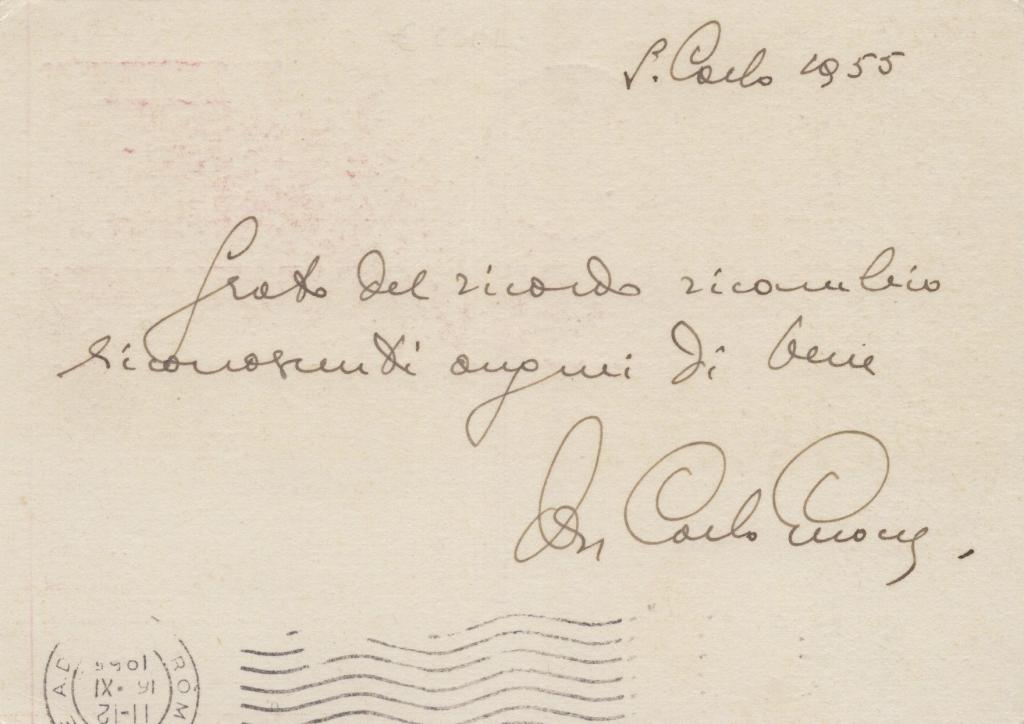 S. Carlo 1955
Grato del ricordo ricambio
riconoscenti auguri di bene
Don Carlo
ROM
A.D
1955
16 • XI
11-12